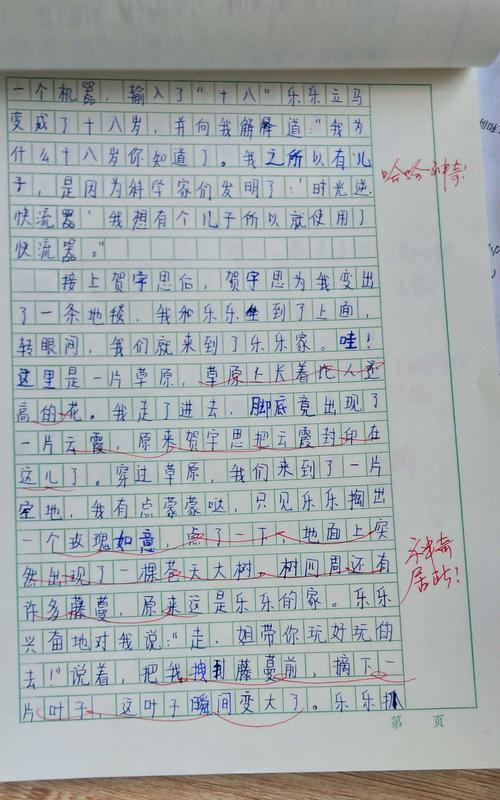 一个机器，输入了“十八”乐乐立马
变成了十八岁，并向我解释道：“我为
什么十八岁你知道了。我之所以有儿
子，是因为科学家们发明了：‘时光逆
快流器’我想有个儿子所以就使用了
快流器。”
哈哈神奇！
接上贺宇思后，贺宇思为我变出
了一条地毯，我和乐乐坐到了上面，
转眼间，我们就来到了乐乐家。哇！
这里是一片草原，草原上长着比人还
高的花。我走了进去，脚底竟出现了
一片云霞，原来贺宇思把云霞封印在
这儿了。穿过草原，我们来到了一片
空地，我有点蒙蒙哒，只见乐乐掏出
一个玫瑰如意，点了一下，地面上突
然出现了一棵苍天大树，树四周还有
许多藤蔓，原来这是乐乐的家。乐乐
神奇
居所！
兴奋地对我说：“走，姐带你玩好玩的
去！”说着，把我拽到藤蔓前，摘下一
片叶子，这叶子瞬间变大了。乐乐扒
第 页